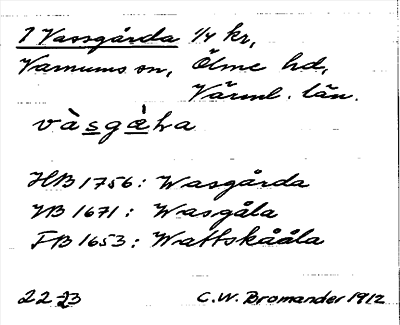 1 Vassgårda 1/4 kr,
Varnums sn, Ölme hd,
Värml. län.
vàsgɑ̀ƚɑ
HB 1756: Wasgårda
JB 1671: Wasgåla
FB 1653: Wattskååla
22 23 C.W. Bromander 1912